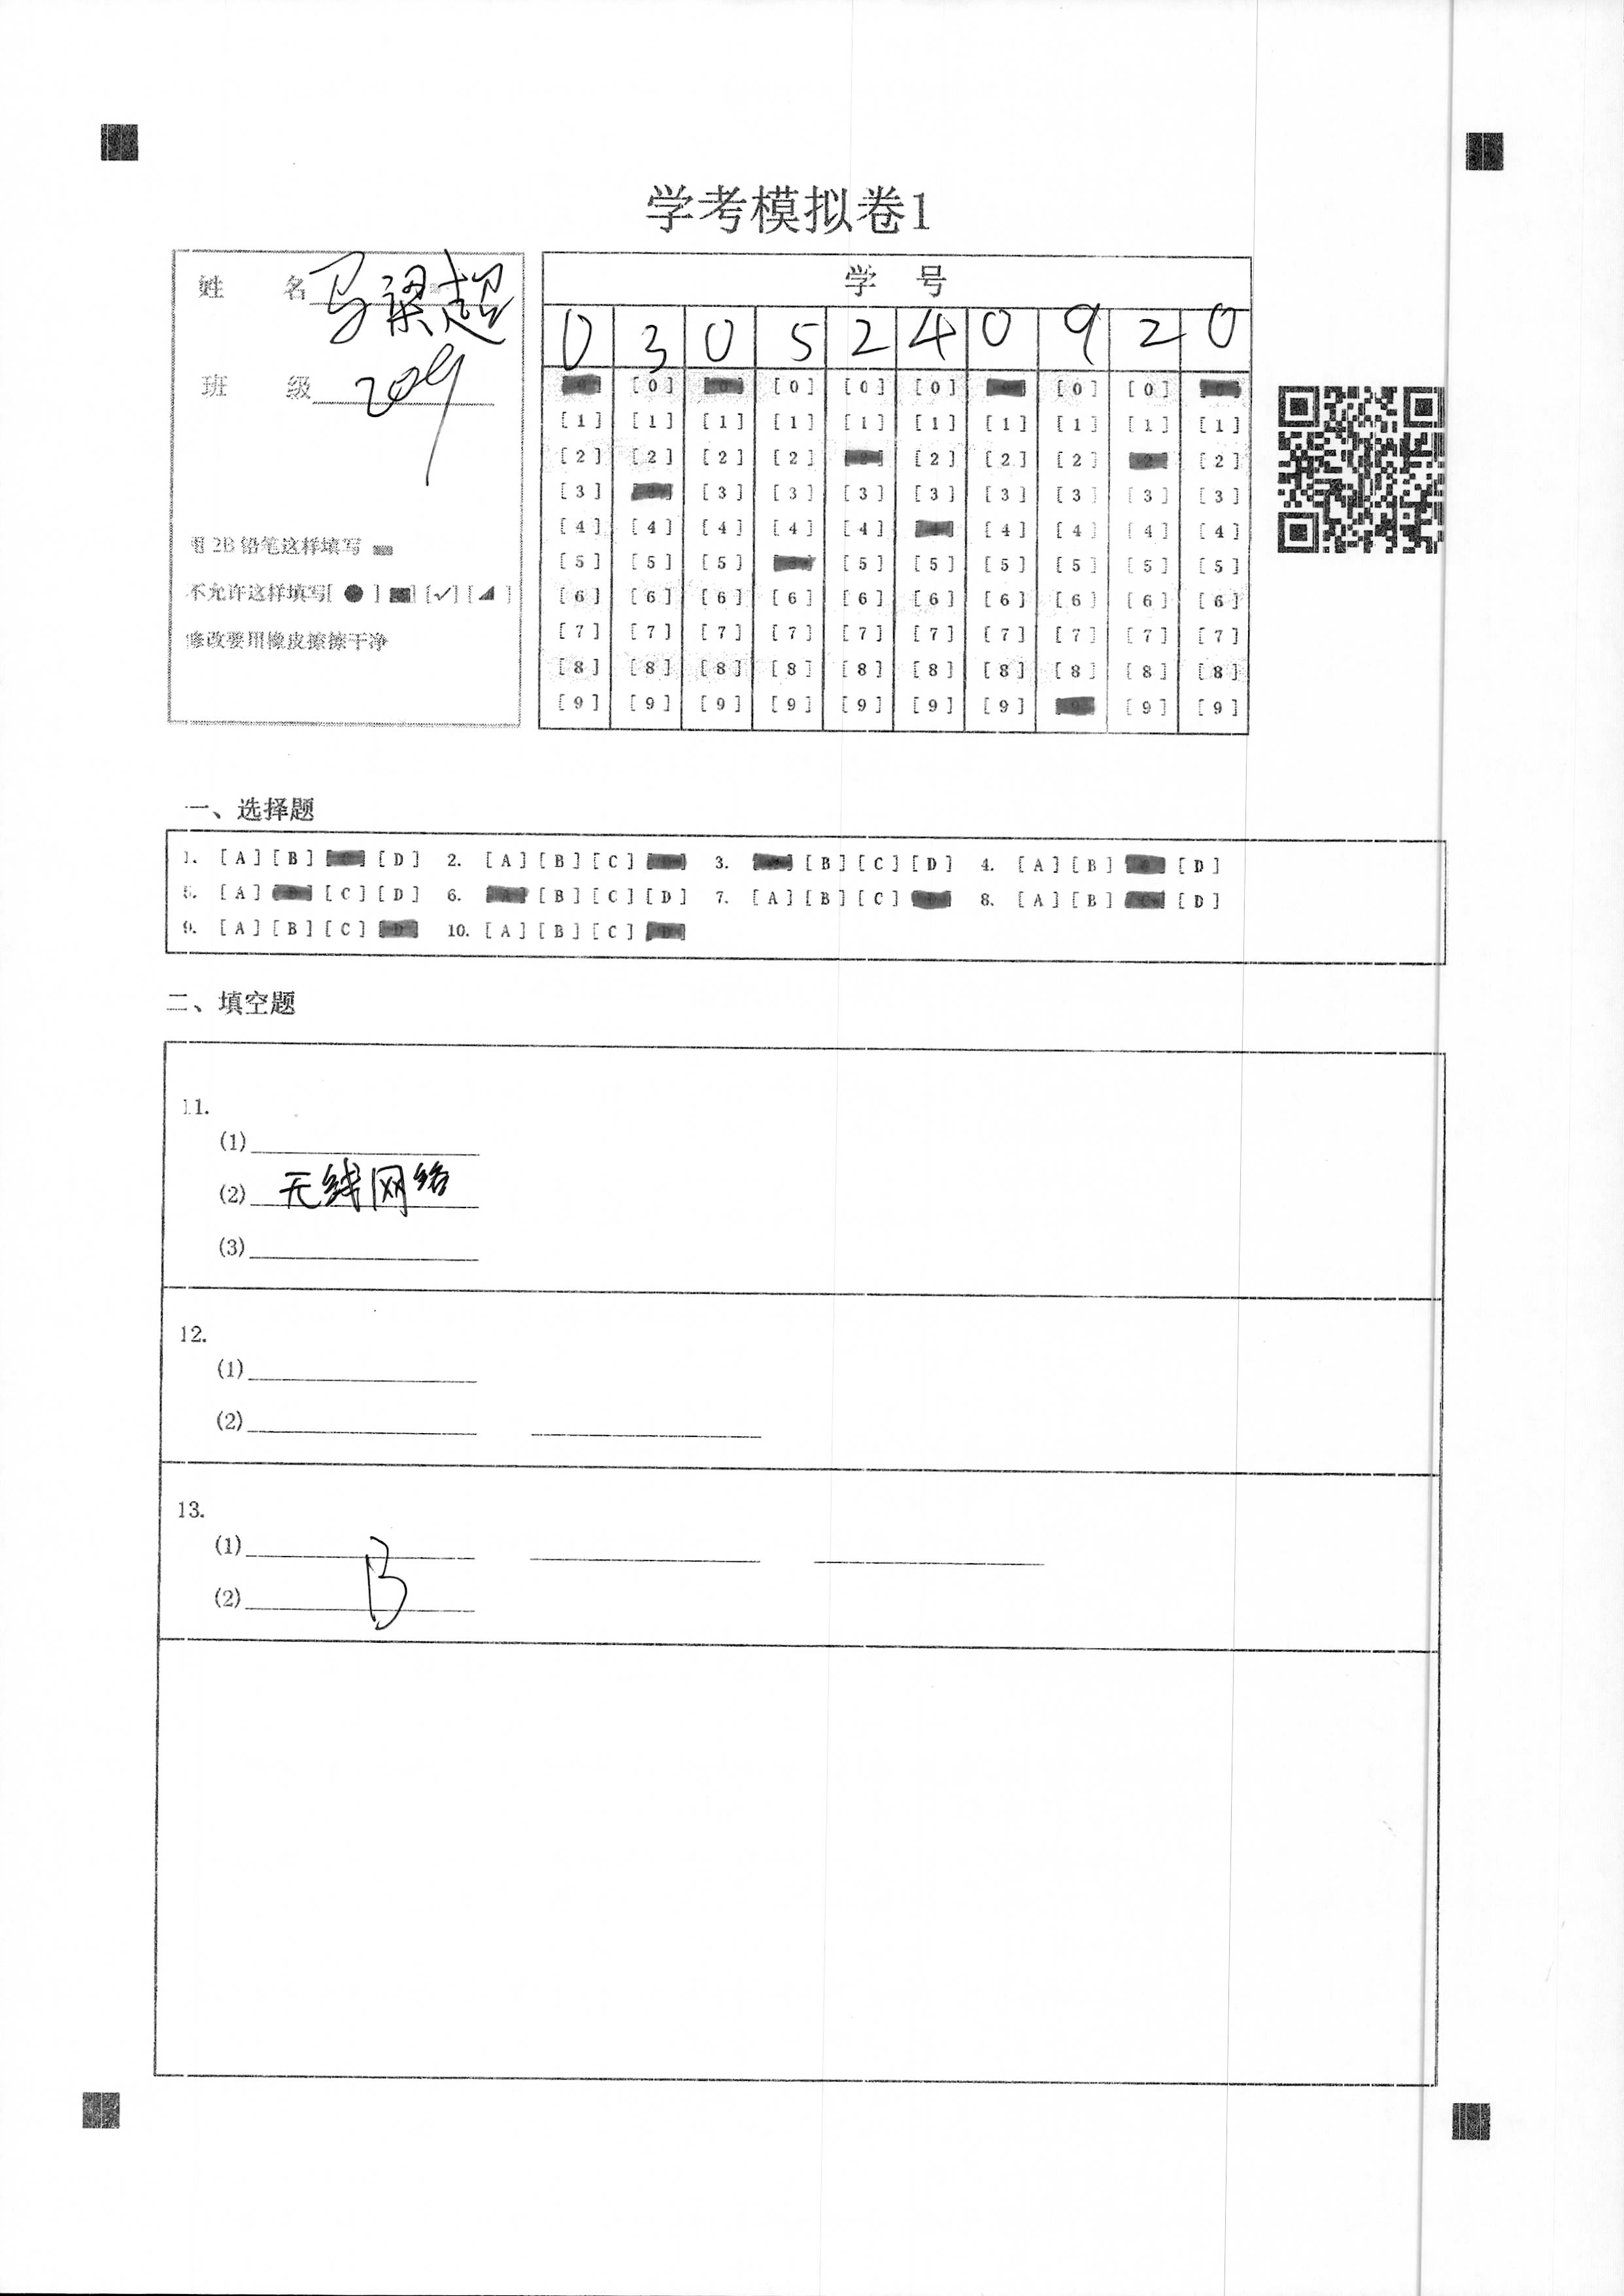 学考模拟卷1
姓 名 马梁超
班 级 209
用 2B 铅笔这样填写
不允许这样填写[ ● ] [■] [✓] [◢ ]
修改要用橡皮擦擦干净
学 号
0 3 0 5 2 4 0 9 2 0
[0] [0] [0] [0] [0] [0]
[1] [1] [1] [1] [1] [1] [1] [1] [1] [1]
[2] [2] [2] [2] [2] [2] [2] [2]
[3] [3] [3] [3] [3] [3] [3] [3] [3]
[4] [4] [4] [4] [4] [4] [4] [4] [4]
[5] [5] [5] [5] [5] [5] [5] [5] [5]
[6] [6] [6] [6] [6] [6] [6] [6] [6] [6]
[7] [7] [7] [7] [7] [7] [7] [7] [7] [7]
[8] [8] [8] [8] [8] [8] [8] [8] [8] [8]
[9] [9] [9] [9] [9] [9] [9] [9] [9]
一、选择题
1. [A] [B] [D] 2. [A] [B] [C] 3. [B] [C] [D] 4. [A] [B] [D]
5. [A] [C] [D] 6. [B] [C] [D] 7. [A] [B] [C] 8. [A] [B] [D]
9. [A] [B] [C] 10. [A] [B] [C]
二、填空题
11.
(1)
(2) 无线网络
(3)
12.
(1)
(2)
13.
(1)
(2) B